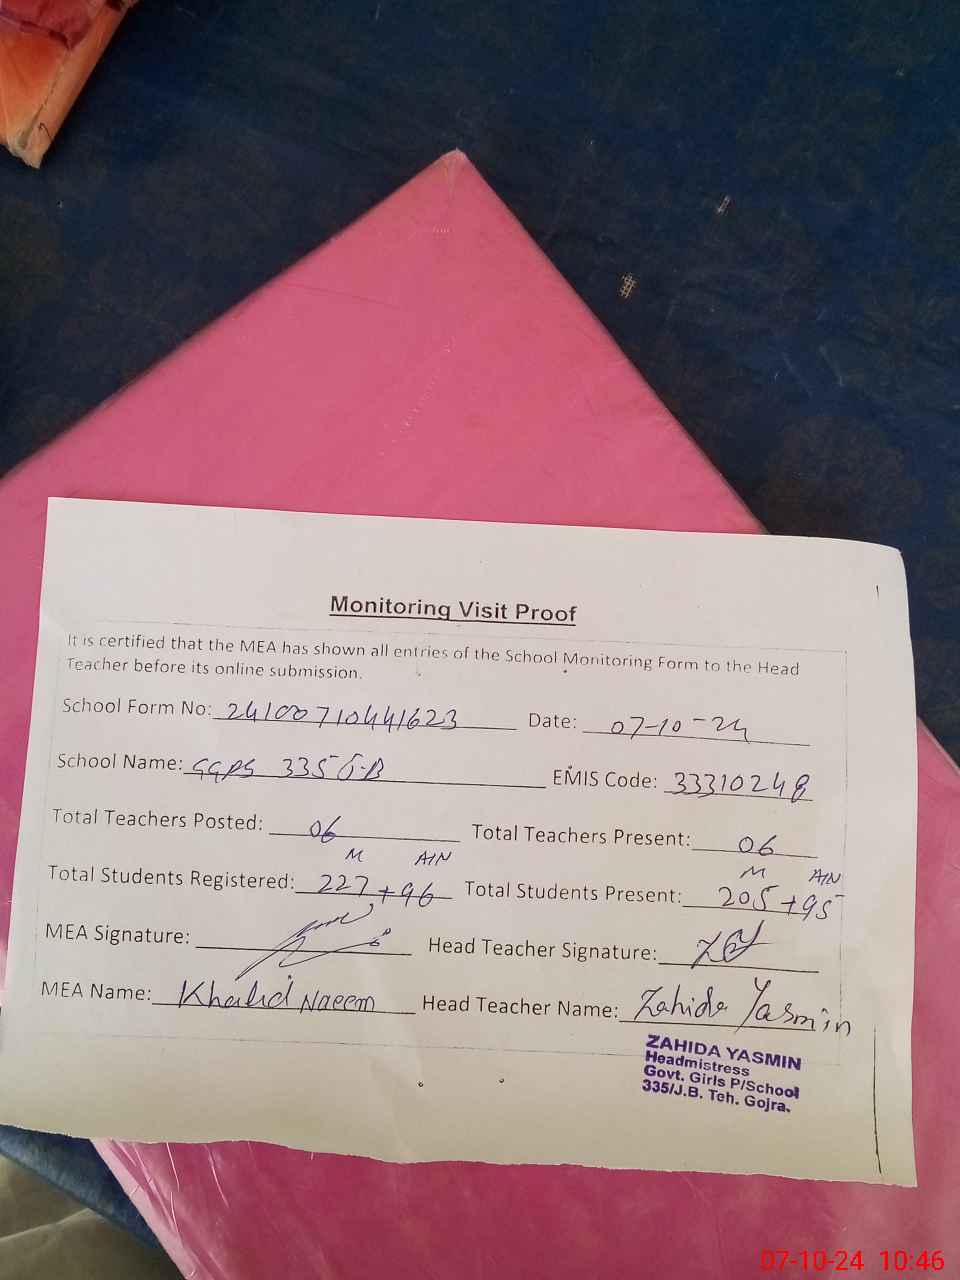 Monitoring Visit Proof
It is certified that the MEA has shown all entries of the School Monitoring Form to the Head
Teacher before its online submission.
School Form No: 24100710441623 Date: 07-10-24
School Name: GGPS 335 J-B EMIS Code: 33310248
Total Teachers Posted: 06 Total Teachers Present: 06
M AIN M AIN
Total Students Registered: 227+96 Total Students Present: 205+95
MEA Signature: Head Teacher Signature:
MEA Name: Khalid Naeem Head Teacher Name: Zahida Yasmin
ZAHIDA YASMIN
Headmistress
Govt. Girls P/School
335/J.B. Teh. Gojra.
07-10-24 10:46